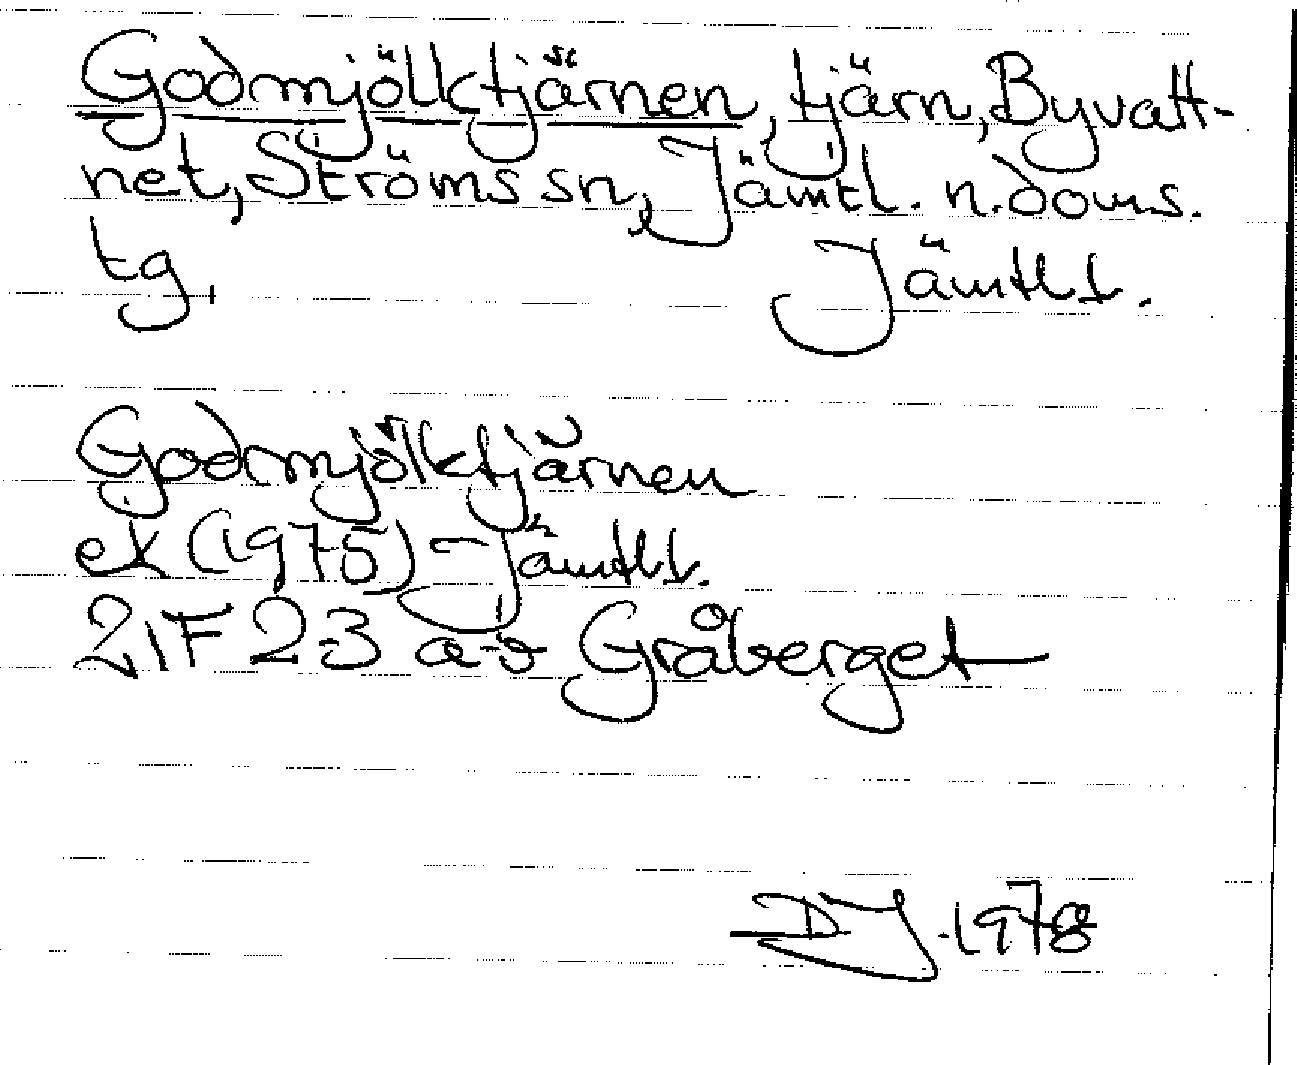 Godmjölktjärnen, tjärn, Byvatt-
net, Ströms sn, Jämtl. n. doms.
tg, Jämtl l.
Godmjölktjärnen
ek (1975) - Jämtl l.
21F 2-3 a-b Gråberget
DJ 1978